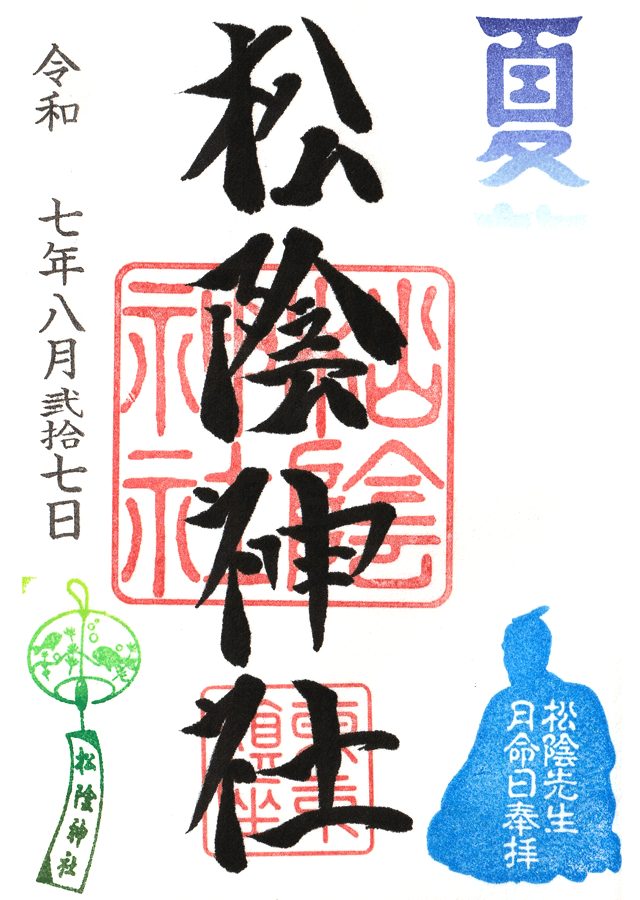 夏
松陰神社
松陰神社
東京鎮座
令和 七年八月弐拾七日
松陰先生
月命日奉拝
松陰神社